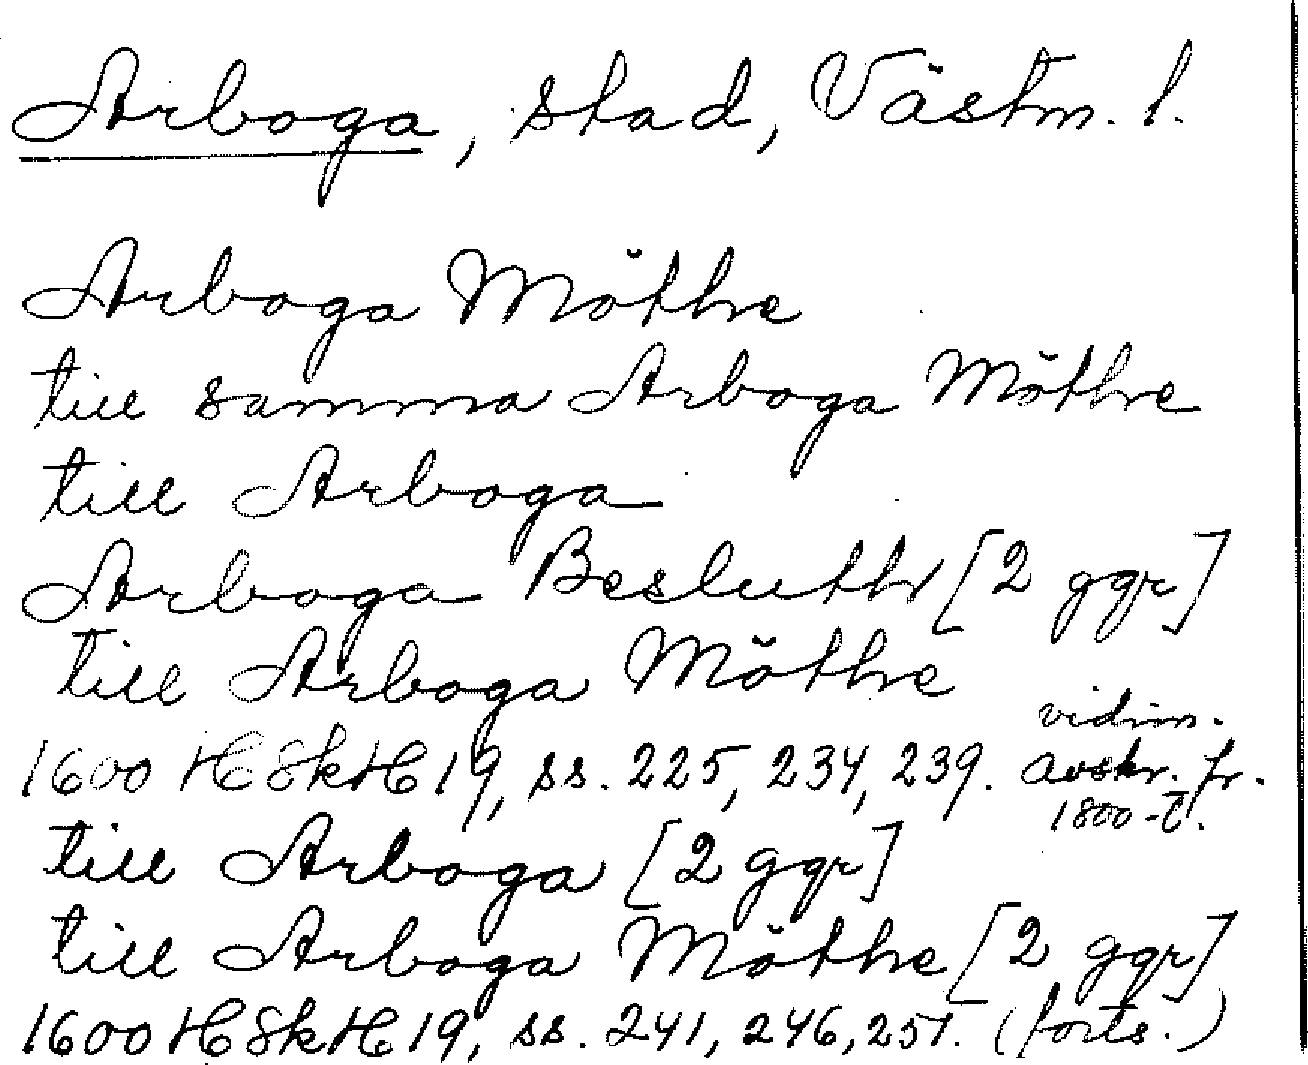 Arboga, stad, Västm. l.
Arboga Möthe
till samma Arboga Möthe
till Arboga
Arboga Besluth [2 ggr]
till Arboga Möthe
1600 HSkH 19, ss. 225, 234, 239. vidim. avskr. fr. 1800-t.
till Arboga [2 ggr]
till Arboga Möthe [2 ggr]
1600 HSkH 19, ss. 241, 246, 251. (forts.)